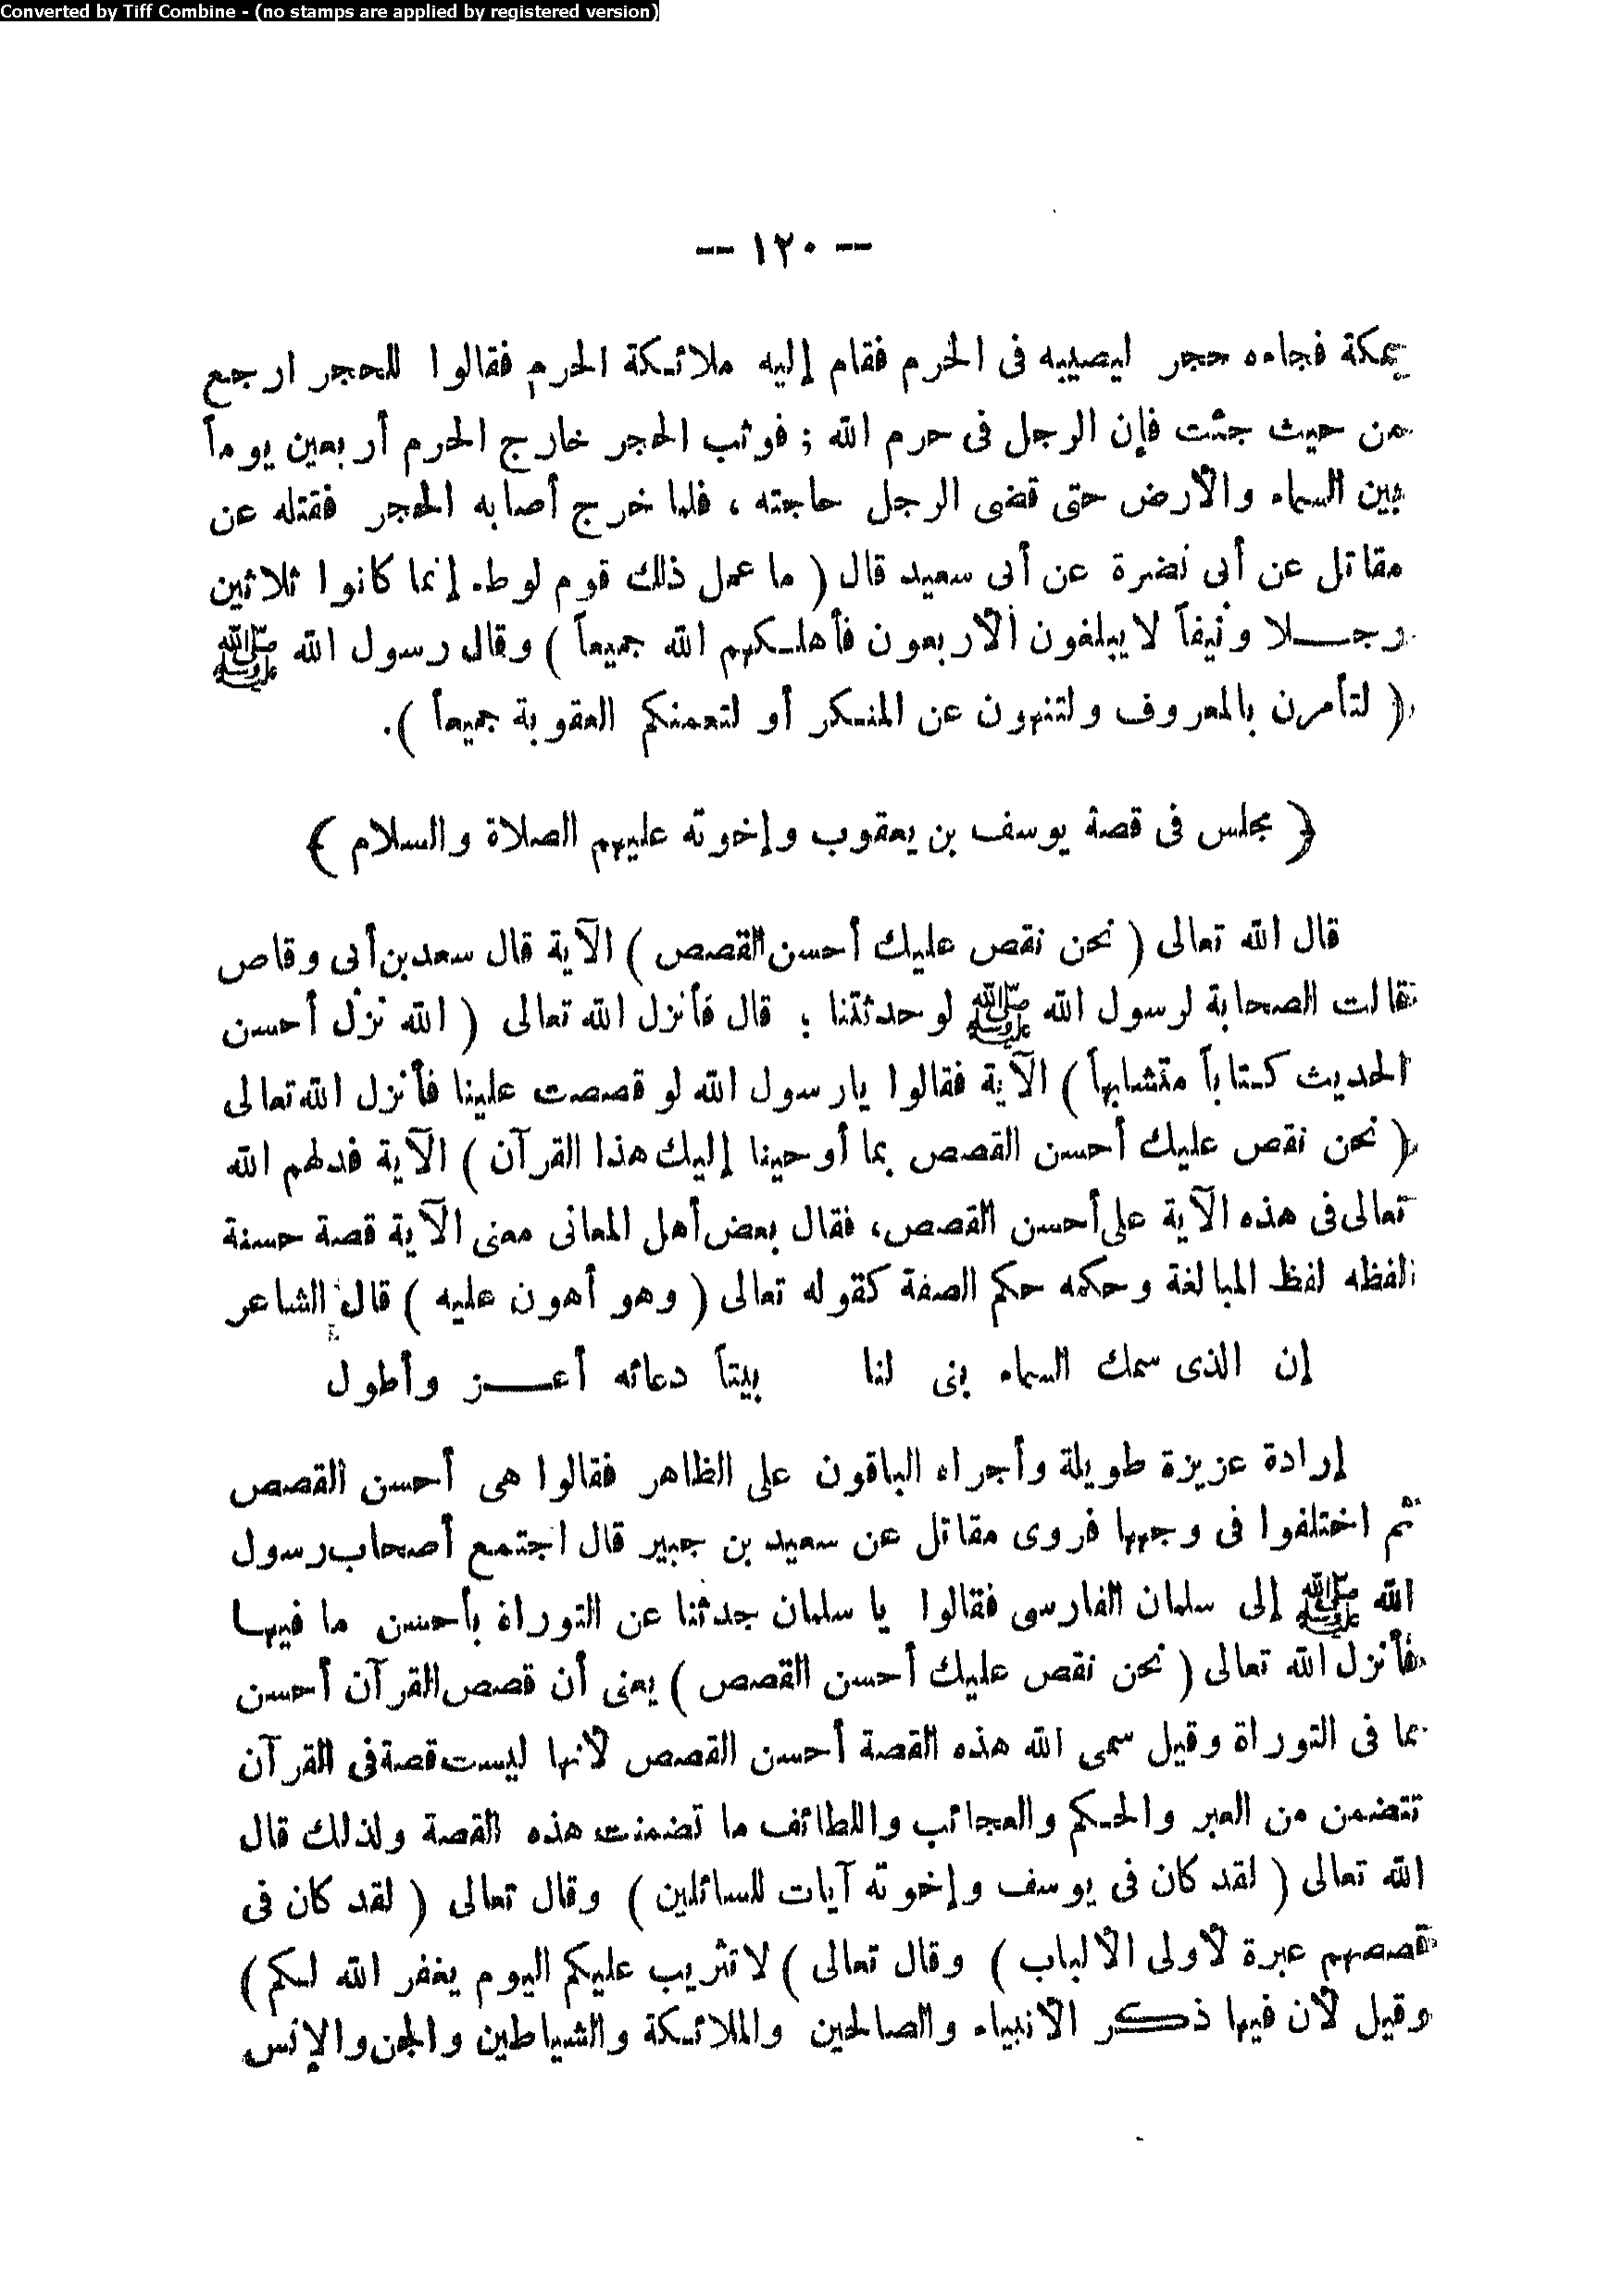 Converted by Tiff Combine - (no stamps are applied by registered version)
-- ١٢٠ --
بمكة فجاءه حجر ليصيبه فى الحرم فقام إليه ملائكة الحرم فقالوا للحجر ارجع
من حيث جئت فإن الرجل فى حرم الله ؛ فوثب الحجر خارج الحرم أربعين يوماً
بين السماء والأرض حتى قضى الرجل حاجته ، فلما خرج أصابه الحجر فقتله عن
مقاتل عن أبى نضرة عن أبى سعيد قال ( ما عمل ذلك قوم لوط. إنما كانوا ثلاثين
رجـــلا ونيفاً لا يبلغون الأربعون فأهلكهم الله جميعاً ) وقال رسول الله ﷺ
( لتأمرن بالمعروف ولتنهون عن المنكر أو لتعمنكم العقوبة جميعاً ).
﴿ مجلس فى قصة يوسف بن يعقوب وإخوته عليهم الصلاة والسلام ﴾
قال الله تعالى ( نحن نقص عليك أحسن القصص ) الآية قال سعد بن أبى وقاص
قالت الصحابة لرسول الله ﷺ لو حدثتنا ؛ قال فأنزل الله تعالى ( الله نزل أحسن
الحديث كتاباً متشابهاً ) الآية فقالوا يارسول الله لو قصصت علينا فأنزل الله تعالى
( نحن نقص عليك أحسن القصص بما أوحينا إليك هذا القرآن ) الآية فدلهم الله
تعالى فى هذه الآية على أحسن القصص، فقال بعض أهل المعانى معنى الآية قصة حسنة
لفظه لفظ المبالغة وحكمه حكم الصفة كقوله تعالى ( وهو أهون عليه ) قال الشاعر
إن الذى سمك السماء بنى لنا     بيتاً دعائه أعـــز وأطول
إرادة عزيزة طويلة وأجراه الباقون على الظاهر فقالوا هى أحسن القصص
ثم اختلفوا فى وجهها فروى مقاتل عن سعيد بن جبير قال اجتمع أصحاب رسول
الله ﷺ إلى سلمان الفارسى فقالوا يا سلمان حدثنا عن التوراة بأحسن ما فيها
فأنزل الله تعالى ( نحن نقص عليك أحسن القصص ) يعنى أن قصص القرآن أحسن
مما فى التوراة وقيل سمى الله هذه القصة أحسن القصص لأنها ليست قصة فى القرآن
تتضمن من العبر والحكم والعجائب واللطائف ما تضمنت هذه القصة ولذلك قال
الله تعالى ( لقد كان فى يوسف وإخوته آيات للسائلين ) وقال تعالى ( لقد كان فى
قصصهم عبرة لأولى الألباب ) وقال تعالى ) لا تثريب عليكم اليوم يغفر الله لكم )
وقيل لأن فيها ذكر الأنبياء والصالحين والملائكة والشياطين والجن والإنس